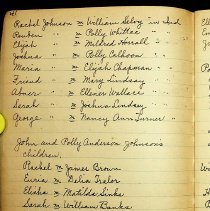 Rachel Johnson m William Selvy in Ind
Reuben " " Polly Whitlee
Elijah " " Mildred Horrall " "
Joshua " " Polly Calhoon "
Maria " " Elijah Chapman "
Friend " Mary Lindsay
Abner " " Ellener Wallace
Sarah " m Joshua Lindsay
George " m Nancy Ann Turner "
John and Polly Anderson Johnson's
children.
Rachel m James Brown
Luvia m Delia Traler
Elisha m Matilda Links
Sarah m William Banks